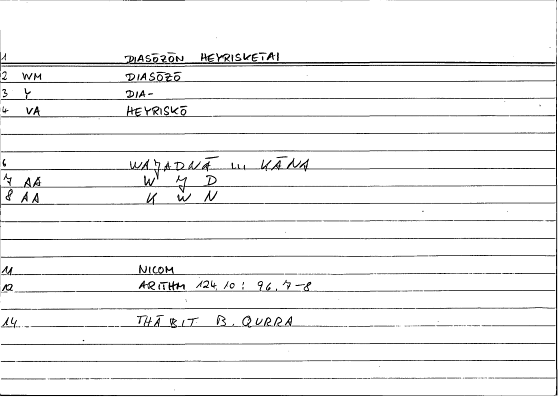 1 DIASŌZŌN HEYRISKETAI
2 WM DIASŌZŌ
3 Y DIA-
4 VA HEYRISKŌ
6 WAJADNĀ ... KĀNA
7 AA W J D
8 AA K W N
11 NICOM
12 ARITHM 124,10 : 96,7-8
14 THĀBIT B. QURRA